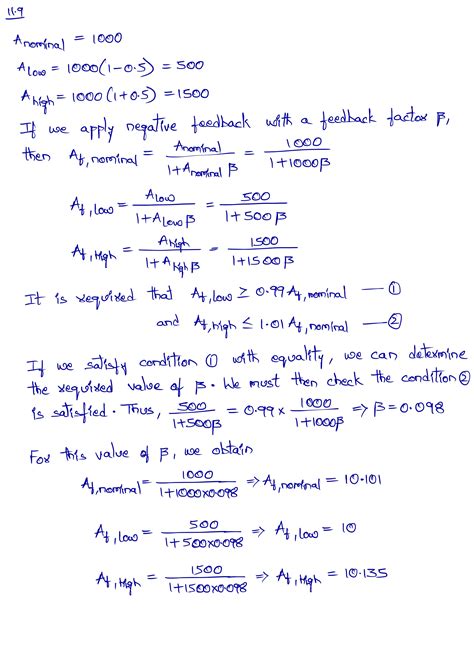 11.9
A nominal = 1000
A low = 1000(1-0.5) = 500
A high = 1000(1+0.5) = 1500
If we apply negative feedback with a feedback factor β,
then Af, nominal = Anominal / 1+Anominal β = 1000 / 1+1000β
Af, low = Alow / 1+Alow β = 500 / 1+500β
Af, High = AHigh / 1+AHigh β = 1500 / 1+1500β
It is required that Af, low ≥ 0.99 Af, nominal —①
and Af, high ≤ 1.01 Af, nominal —②
If we satisfy condition ① with equality, we can determine
the required value of β. We must then check the condition ②
is satisfied. Thus, 500 / 1+500β = 0.99 × 1000 / 1+1000β ⇒ β = 0.098
For this value of β, we obtain
Af, nominal = 1000 / 1+1000×0.098 ⇒ Af, nominal = 10.101
Af, low = 500 / 1+500×0.098 ⇒ Af, low = 10
Af, High = 1500 / 1+1500×0.098 ⇒ Af, High = 10.135